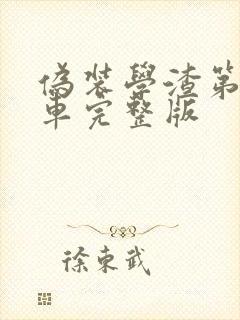 偽裝學渣第
車完整版
徐東武